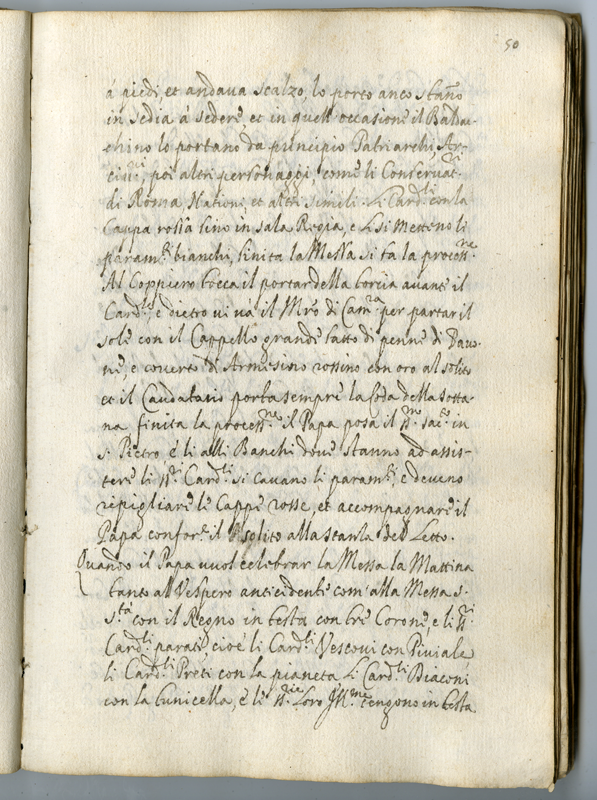 50
á piedi, et andaua scalzo, lo porto anco stãno
in sedia á sedere et in quest'occasione il Balda-
chino lo portano da principio Patriarchi, Ar-
ciu:ui, poi altri personaggi come li Conseruat:ri
di Roma Nationi, et altri simili. Li Card:li con la
Cappa rossa sino in sala Regia, e Li si mettono li
param:ti bianchi, finita la Messa si fa la process:ne.
Al Coppiero tocca il portar della torcia auanti il
Card:le, e dietro ui uá il Mro di Cam:ra per portar il
sole con il Cappello grande fatto di penne di Pauo-
ne, e couerto di Armesino rossino con oro al solito
et il Caudatario porta sempre la Coda della sotta-
na finita la process:ne il Papa posa il SS:mo Sac:to in
S. Pietro é li alli Banchi doue stanno ad assis-
tere li SS:ri Card:li si cauano li param:ti, e deueno
ripigliare le Cappe rosse, et accompagnare il
Papa conforme il solito alla stanza del Letto.
Quando il Papa uuol celebrar la Messa la Mattina
tanto al Vespero antecidente com'alla Messa S.
S:tá con il Regno in testa con tre Corone, e li SS:ri
Card:li parati, cioé li Card:li Vescoui con Piuiale
li Card:li Preti con la pianeta Li Card:li Diaconi
con la tunicella, é le SS:rie Loro Ill:me tengono in testa